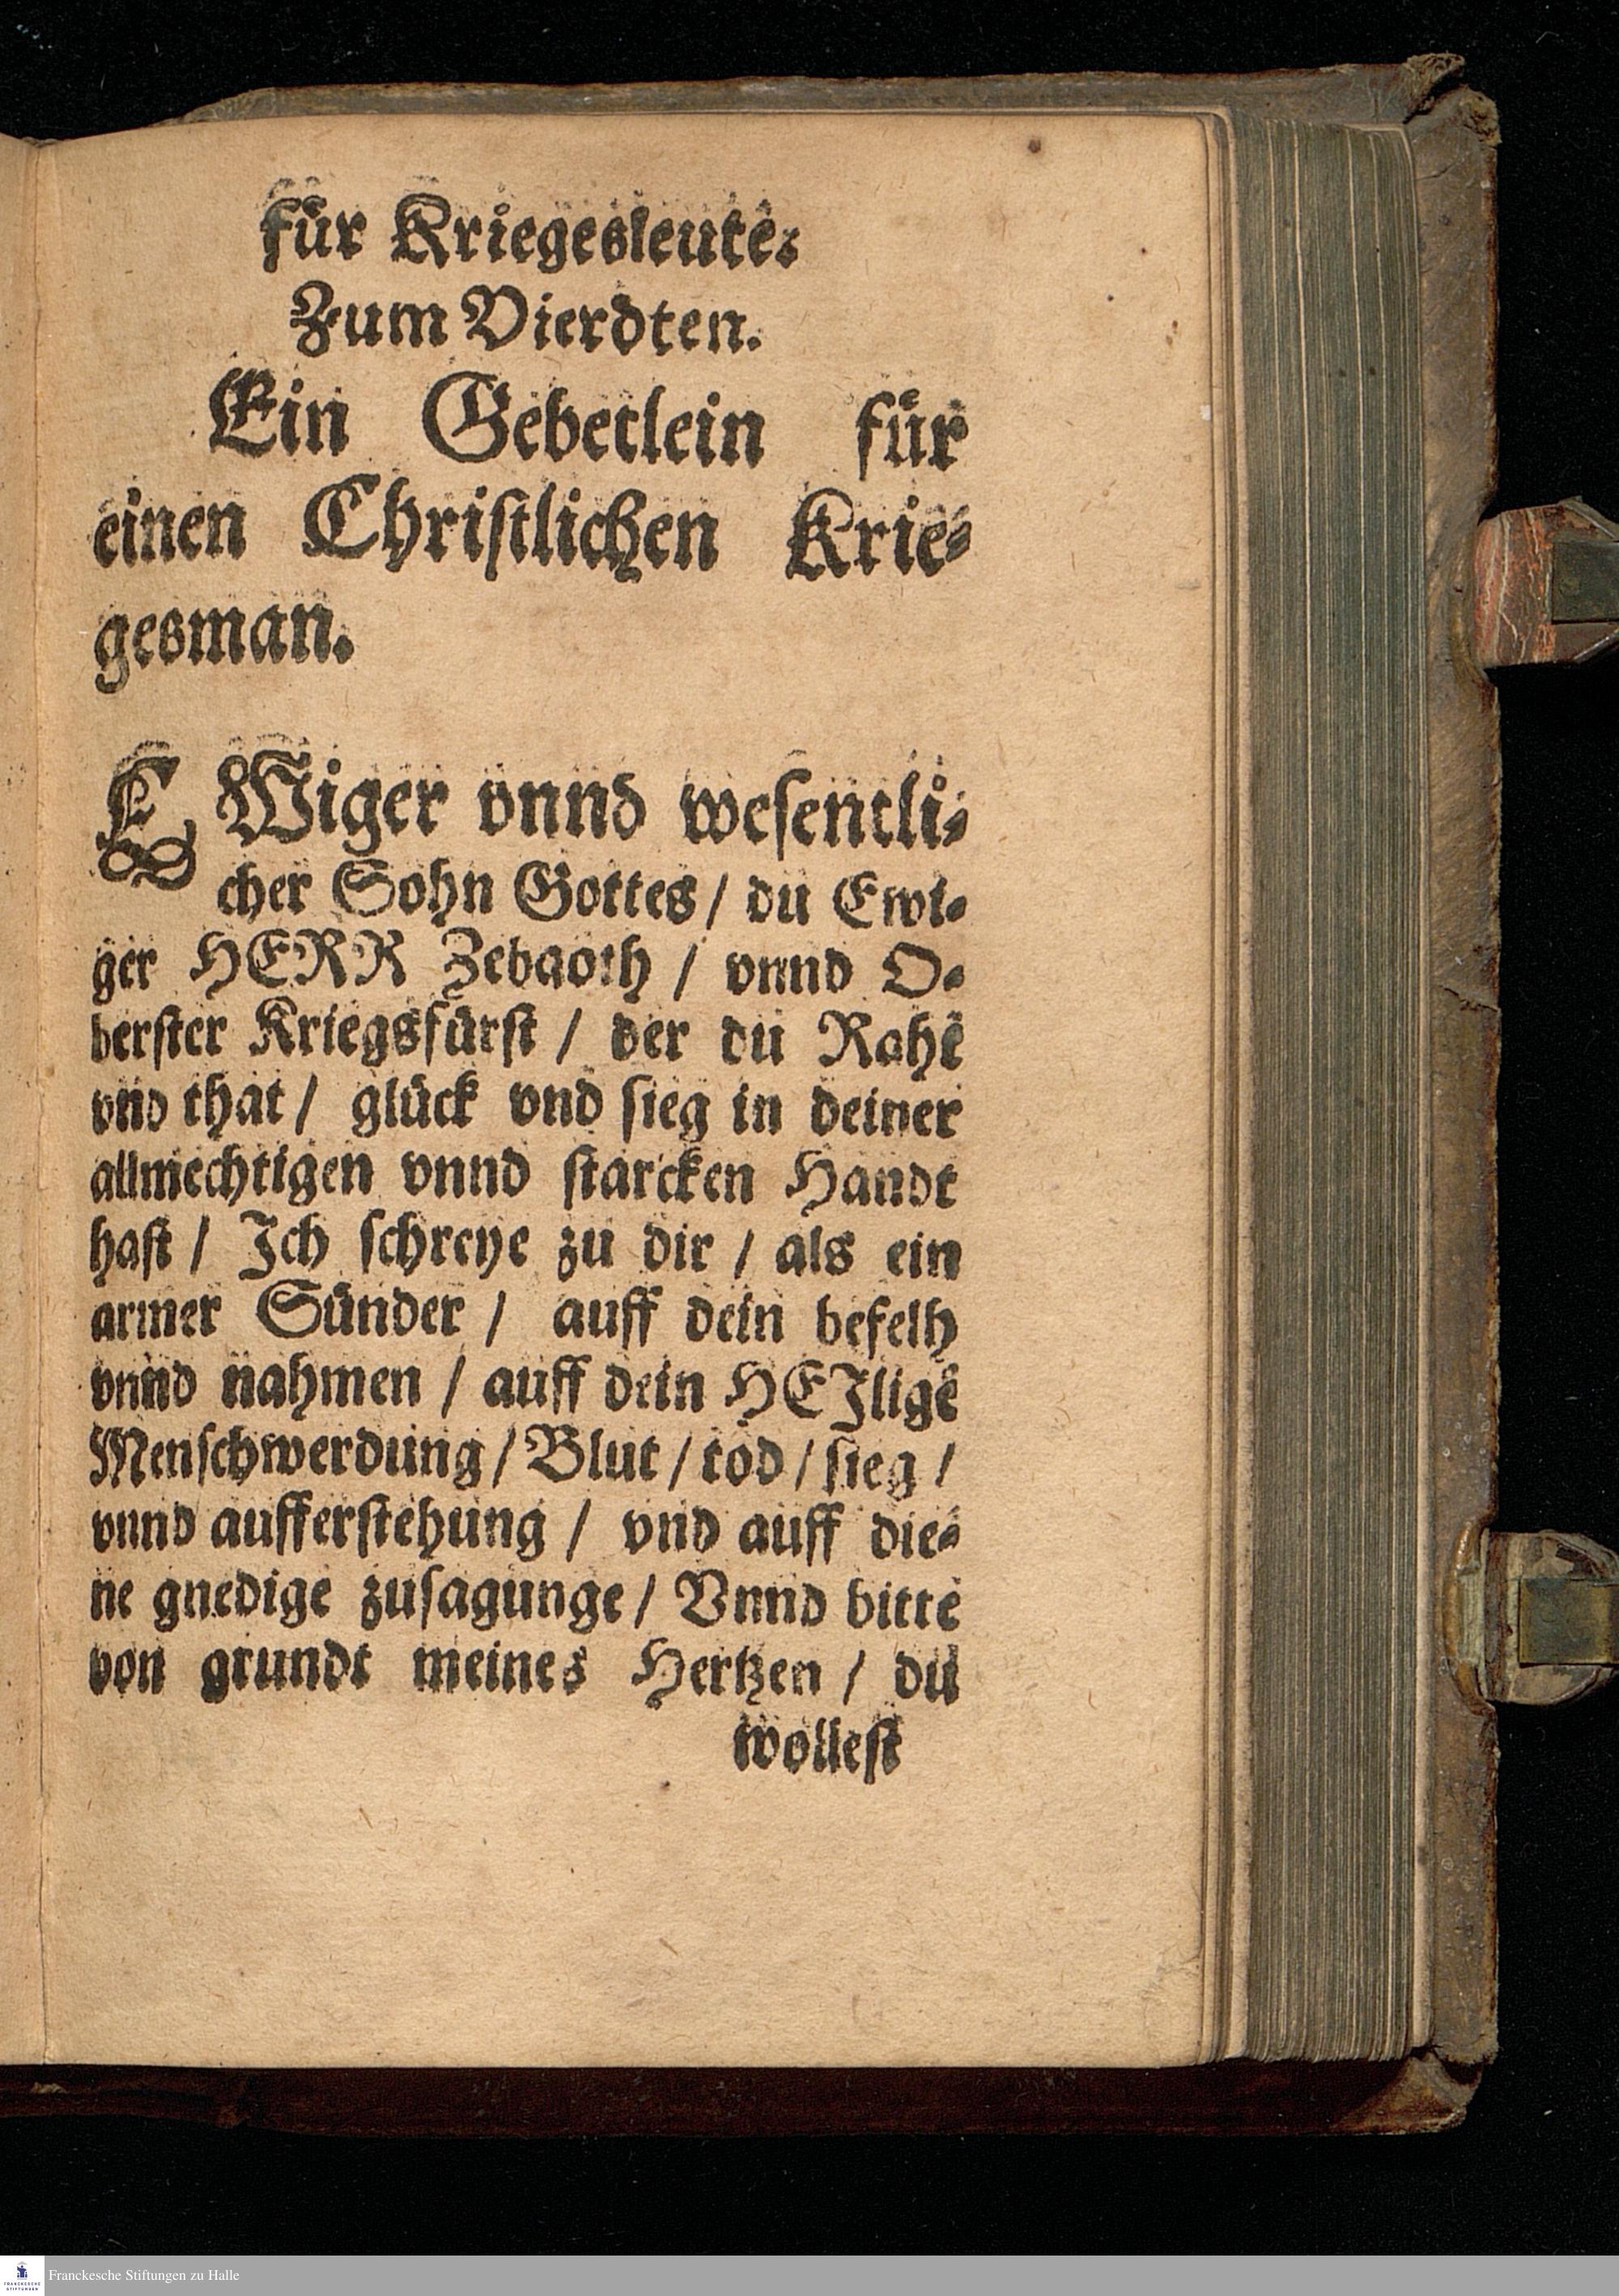 für Kriegesleute.
Zum Vierdten.
Ein Gebetlein für
einen Christlichen Krie-
gesman.
EWiger vnnd wesentli-
cher Sohn Gottes / du Ewi-
ger HERR Zebaoth / vnnd O-
berster Kriegsfürst / der du Raht
vnd that / glück vnd sieg in deiner
allmechtigen vnnd starcken Handt
hast / Ich schreye zu dir / als ein
armer Sünder / auff dein befelh
vnnd nahmen / auff dein HEIlige
Menschwerdung / Blut / tod / sieg /
vnnd aufferstehung / vnd auff die-
ne gnedige zusagunge / Vnnd bitte
von grundt meines Hertzen / du
wollest
Franckesche Stiftungen zu Halle